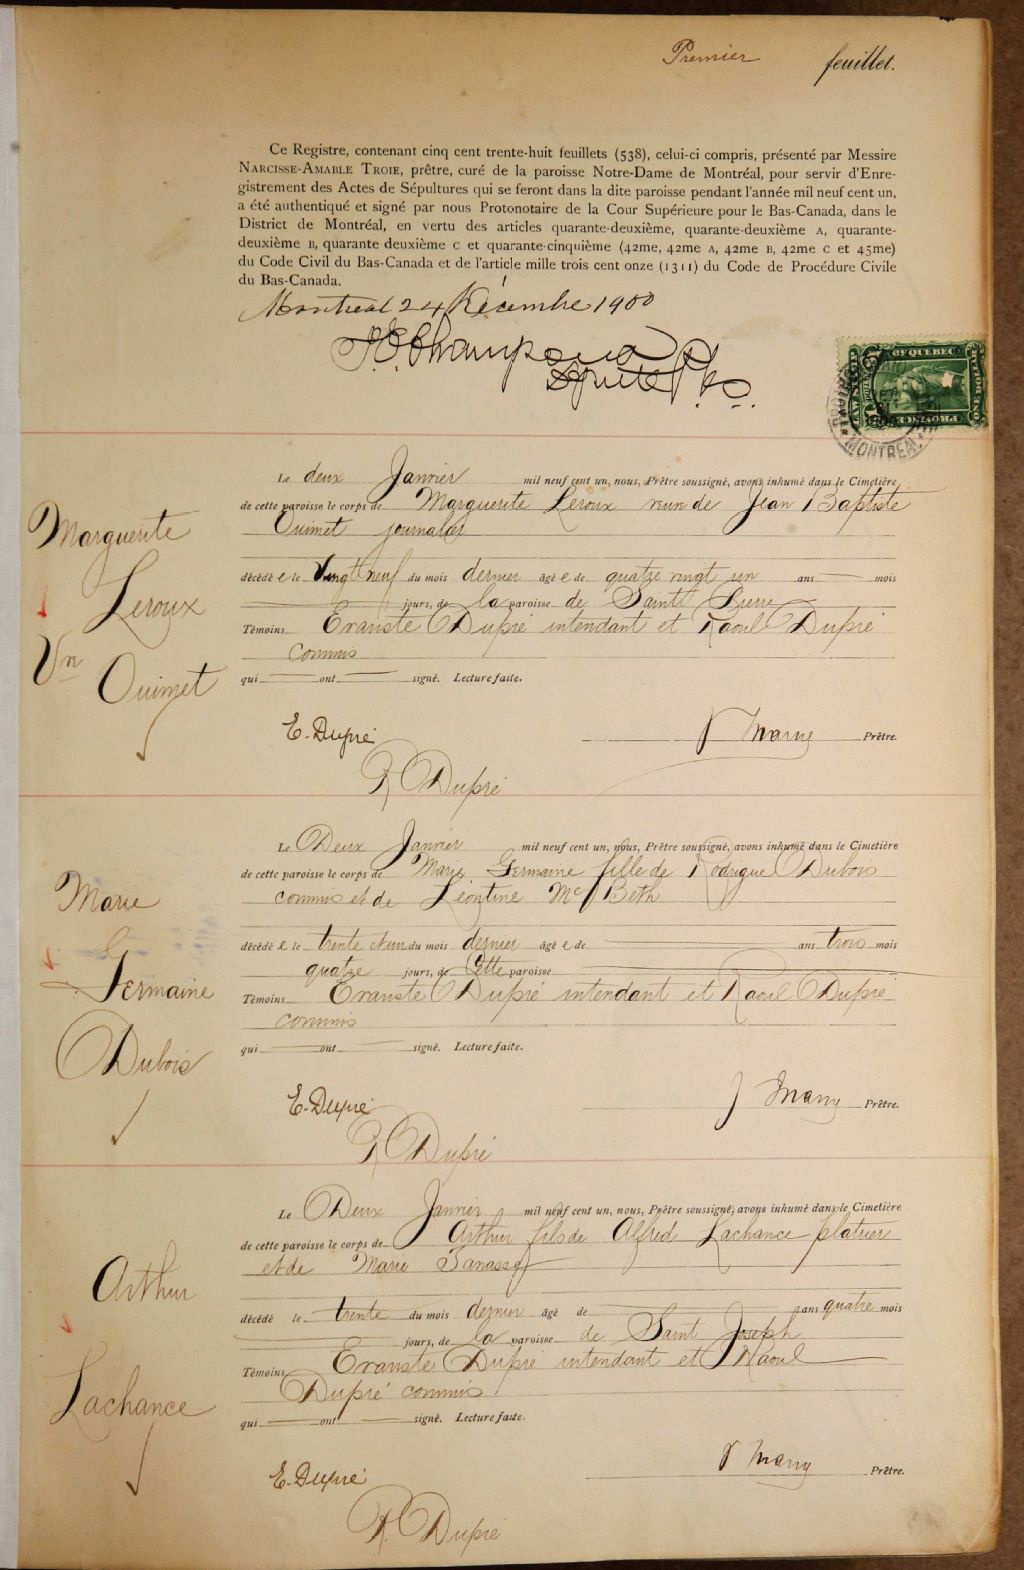 Premier feuillet.
Ce Registre, contenant cinq cent trente-huit feuillets (538), celui-ci compris, présenté par Messire
NARCISSE-AMABLE TROIE, prêtre, curé de la paroisse Notre-Dame de Montréal, pour servir d'Enre-
gistrement des Actes de Sépultures qui se feront dans la dite paroisse pendant l'année mil neuf cent un,
a été authentiqué et signé par nous Protonotaire de la Cour Supérieure pour le Bas-Canada, dans le
District de Montréal, en vertu des articles quarante-deuxième, quarante-deuxième A, quarante-
deuxième B, quarante-deuxième C et quarante-cinquième (42me, 42me A, 42me B, 42me C et 45me)
du Code Civil du Bas-Canada et de l'article mille trois cent onze (1311) du Code de Procédure Civile
du Bas-Canada.
Montreal 24 Décembre 1900
Député
OF QUEBEC
LAW STAMP
ONE DOLLAR
PROVINCE
MONTREAL
Marguerite
Leroux
Vve
Ouimet
Le deux Janvier mil neuf cent un, nous, Prêtre soussigné, avons inhumé dans le Cimetière
de cette paroisse le corps de Marguerite Leroux veuve de Jean Baptiste
Ouimet journalier
décédée le Vingt neuf du mois dernier âgée de quatre vingt un ans mois
jours, de la paroisse de Saint Pierre
Témoins Evariste Dupré intendant et Raoul Dupré
commis
qui ont signé. Lecture faite.
E. Dupré
Prêtre.
R Dupré
Marie
Germaine
Dubois
Le Deux Janvier mil neuf cent un, nous, Prêtre soussigné, avons inhumé dans le Cimetière
de cette paroisse le corps de Marie Germaine fille de Rodrigue Dubois
commis et de Léontine Mc Beth
décédée le trente et un du mois dernier âgée de ans trois mois
quatre jours, de Cette paroisse
Témoins Evariste Dupré intendant et Raoul Dupré
commis
qui ont signé. Lecture faite.
E. Dupré
Prêtre.
R Dupré
Arthur
Lachance
Le Deux Janvier mil neuf cent un, nous, Prêtre soussigné, avons inhumé dans le Cimetière
de cette paroisse le corps de Arthur fils de Alfred Lachance platrier
et de Marie
décédé le trente du mois dernier âgé de ans quatre mois
jours, de la paroisse de Saint Joseph
Témoins Evariste Dupré intendant et Raoul
Dupré commis
qui ont signé. Lecture faite.
E. Dupré
Prêtre.
R. Dupré